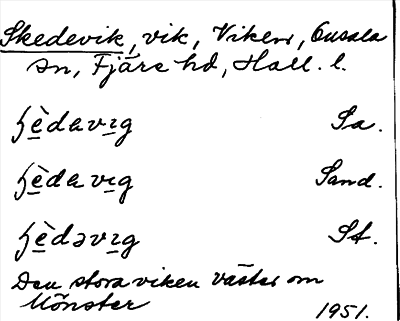 Skedevik, vik, Viken, Onsala
sn, Fjäre hd, Hall. l.
ɧè̲davı̲g Sa.
ɧè̲davı̲g Sand.
ɧè̲dəvı̲g St.
Den stora viken väster om
Mönster
1951.